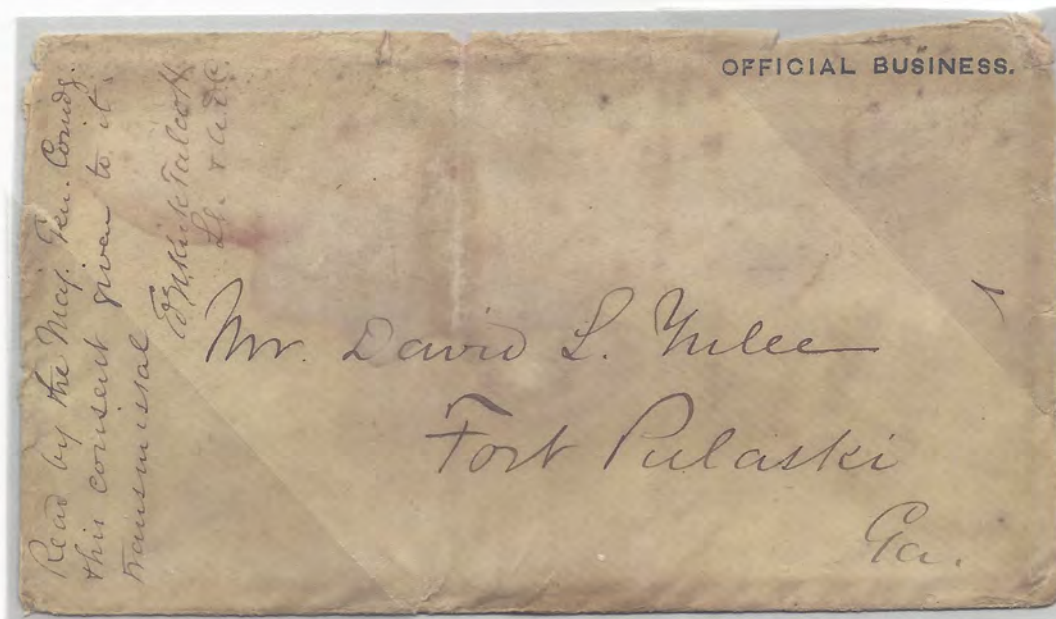 OFFICIAL BUSINESS.
Read by the Maj. Gen. Comdg.
this consent given to it
transmissal
Kirke Talcott
Lt. & A.D.C.
Mr. David L. Yulee
Fort Pulaski
Ga.